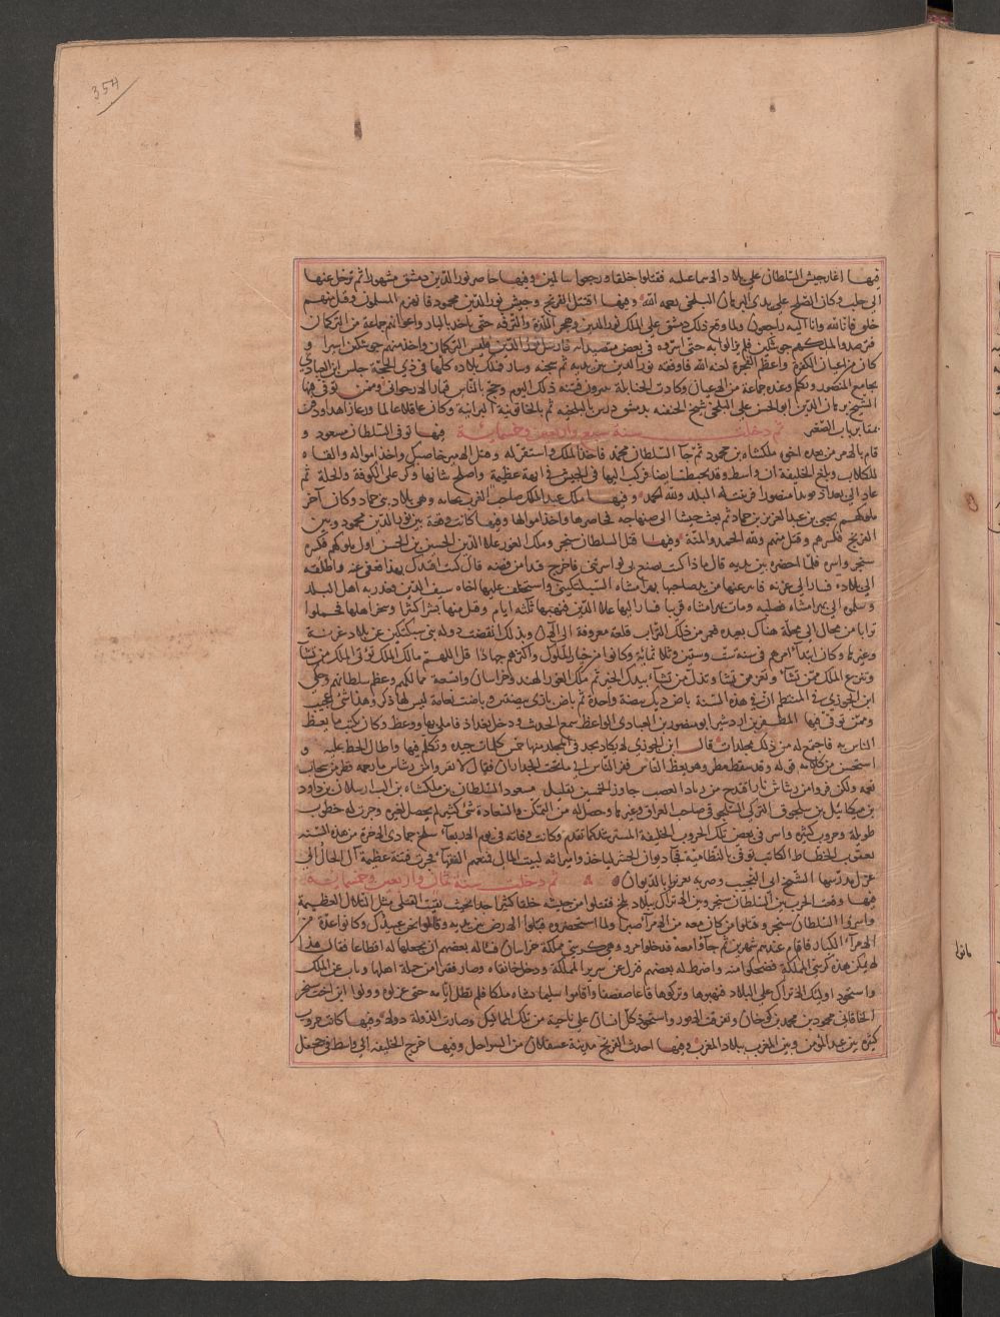 354
فيها اغار جيش السلطان على بلاد الاسماعيلية فقتلوا خلقا ورجعوا سالمين وفيها حاصر نور الدين دمشق شهورا ثم ترحل عنها
الى حلب وكان الصلح على يدى البرهان البلخى رحمه الله وفيها اقتتل الفرنج وجيش نور الدين محمود فانهزم المسلمون وقتل منهم
خلق فانا لله وانا اليه راجعون ولما وقع ذلك شق على الملك نور الدين وهجر اللذة والترفه حتى ياخذ بالثار جماعة من التركمان
فترصدوا الملكهم جوسلين فلم يزالوا به حتى اسروه فى بعض متصيداته فارسل نور الدين فكبس التركمان واخذ منهم جوسلين اسيرا و
كان من اعيان الكفرة واعظم الفجرة لعنه الله فاوقفه نور الدين بين يديه ثم سجنه وسار فملك بلاده كلها فى ذى الحجة جلس ابن العبادى
بجامع المنصور وتكلم وعنده جماعة من الاعيان وكادت الحنابلة يثيرون فتنة ذلك اليوم وحج بالناس قيماز الارجوانى وممن توفى فيها
الشيخ برهان الدين ابو الحسن على البلخى شيخ الحنفية بدمشق درس بالبلخية ثم بالخاتونية البرانية وكان عاقلا عالما ورعا زاهدا ودفن
بمقابر باب الصغير ثم دخلت سنة سبع واربعين وخمسمائة فيها توفى السلطان مسعود و
قام بالامر من بعده اخوه ملكشاه بن محمود ثم جا السلطان محمد فاخذ الملك واستقر له وقتل الامير خاصبك واخذ امواله والقاه
للكلاب وبلغ الخليفة ان واسط قد تخبطت ايضا فركب اليها فى الجيش فى ابهة عظيمة واصلح شانها وكر على الكوفة والحلة ثم
عاد الى بغداد مؤيدا منصورا فزينت له البلد ولله الحمد وفيها ملك عبد المؤمن صاحب الغرب بجاية وهى بلاد بنى حماد وكان آخر
ملوكهم يحيى بن عبد العزيز بن حماد ثم بعث جيشا الى صنهاجه فحاصرها واخذ اموالها وفيها كانت وقعة بين نور الدين محمود وبين
الفرنج فكسرهم وقتل منهم ولله الحمد والمنة وفيها قتل السلطان سنجر وملك الغور علاء الدين الحسين بن الحسن اول ملوكهم فكسره
سنجر واسره فلما احضره بين يديه قال ماذا كنت تصنع بى لو اسرتنى فاخرج قيدا من فضة قال كنت اقيدك بهذا فعفى عنه واطلقه
الى بلاده فسار الى غزنة فانتزعها من يد صاحبها بهرامشاه السبكتكينى واستخلف عليها اخاه سيف الدين فغدر به اهل البلد
وسلموه الى بهرامشاه فصلبه ومات بهرامشاه قريبا فسار اليها علاء الدين فنهبها ثلثة ايام وقتل منها بشرا كثيرا وسخر اهلها فحملوا
ترابا من مخال الى محلة هناك بعيده فعمر من ذلك التراب قلعة معروفة الى الآن وبذلك انقضت دولة بنى سبكتكين عن بلاد غزنة
وغيرها وكان ابتدآ امرهم فى سنه ست وستين وثلاثمائة وكانوا من خيار الملوك واكثرهم جهادا قل اللهم مالك الملك تؤتى الملك من تشآ
وتنزع الملك ممن تشآ وتعز من تشآ وتذل من تشآ بيدك الخير ثم ملك الغور الهند وخراسان واتسعت ممالكهم وعظم سلطانهم وحكى
ابن الجوزى فى المنتظم ان فى هذه السنة باض ديك بيضة واحدة ثم باض بازى بيضتين وباضت نعامة ليس لها ذكر وهذا شئ عجيب
وممن توفى فيها المظفر بن اردشير ابو منصور بن العبادى الواعظ سمع الحديث ودخل بغداد فاملى بها ووعظ وكان يكتب ما يعظ
الناس به فاجتمع له من ذلك مجلدات قال ابن الجوزى لا يكاد يجد فى المجلد منها خمس كلمات جيده وتكلم فيها واطال الحط عليه و
استحسن من كلامه قوله وقد سقط مطر وهو يعظ الناس ففر الناس الى ما تحت الجدران فقال لا تفروا من رشاش ماء رحمة قطر من سحاب
نعمه ولكن فروا من رشاش نار اقتدح من زناد الغضب جاوز الخمسين بقليل مسعود السلطان بن ملكشاه بن الب ارسلان بن داود
بن ميكائيل بن سلجوق التركى السلجوقى صاحب العراق وغيرها وحصل له من التمكن والسعادة شئ كثير لم يحصل لغيره وجرت له خطوب
طويلة وحروب كثيره واسر فى بعض تلك الحروب الخليفة المسترشد كما تقدم وكانت وفاته فى يوم الاربعاء سلخ جمادى الآخرة من هذه السنه
يعقوب الخطاط الكاتب توفى بالنظامية فجآ ديوان الحشر لياخذوا ميراثه لبيت المال فمنعهم الفقهآ فجرت فتنة عظيمة آل الحال الى
عزل مدرسها الشيخ ابى النجيب وضربه تعزيرا بالديوان ثم دخلت سنة ثمان واربعين وخمسمائة
فيها وقعت الحرب بين السلطان سنجر وبين الاتراك ببلاد بلخ فقتلوا من جيشه خلقا كثيرا جدا بحيث بقيت القتلى مثل التلال العظيمة
واسروا السلطان سنجر وقتلوا من كان معه من الامرآ صبرا ولما استحضروه قبلوا الارض بين يديه وقالوا نحن عبيدك وكانوا عدة من
الامرآ الكبار فاقام عندهم شهرين ثم جآؤا معه فدخلوا مرو وهى كرسى مملكة خراسان فساله بعضهم ان يجعلها له اقطاعا فقال هذا
لا يمكن هذه كرسى المملكة فضحكوا منه واضرط له بعضهم فنزل عن سرير المملكة ودخل خانقاه وصار فقيرا من جملة اهلها وتاب عن الملك
واستحوذ اولئك الاتراك على البلاد فنهبوها وتركوها قاعا صفصفا واقاموا سليمان شاه ملكا فلم تطل ايامه حتى عزلوه وولوا ابن اخت سنجر
الخاقان محمود بن محمد بن كوخان وتفرقت الامور واستحوذ كل انسان على ناحية من تلك الممالك وصارت الدولة دولا وفيها كانت حروب
كثيره بين عبد المؤمن وبين العرب ببلاد المغرب وفيها اخذت الفرنج مدينة عسقلان من السواحل وفيها خرج الخليفه الى واسط فى جحفل